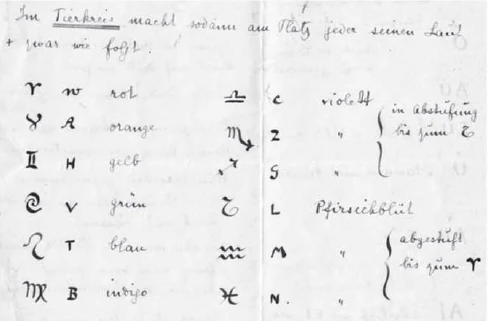 Im Tierkreis macht sodann am Platz jeder seinen Laut
+ zwar wie folgt.
♈ W rot ♎ C violett
♉ A orange ♏ Z " in Abstufung
♊ H gelb ♐ G " bis zum ♑
♋ V grün ♑ L Pfirsichblüt
♌ T blau ♒ M " abgestuft
♍ B indigo ♓ N. " bis zum ♈